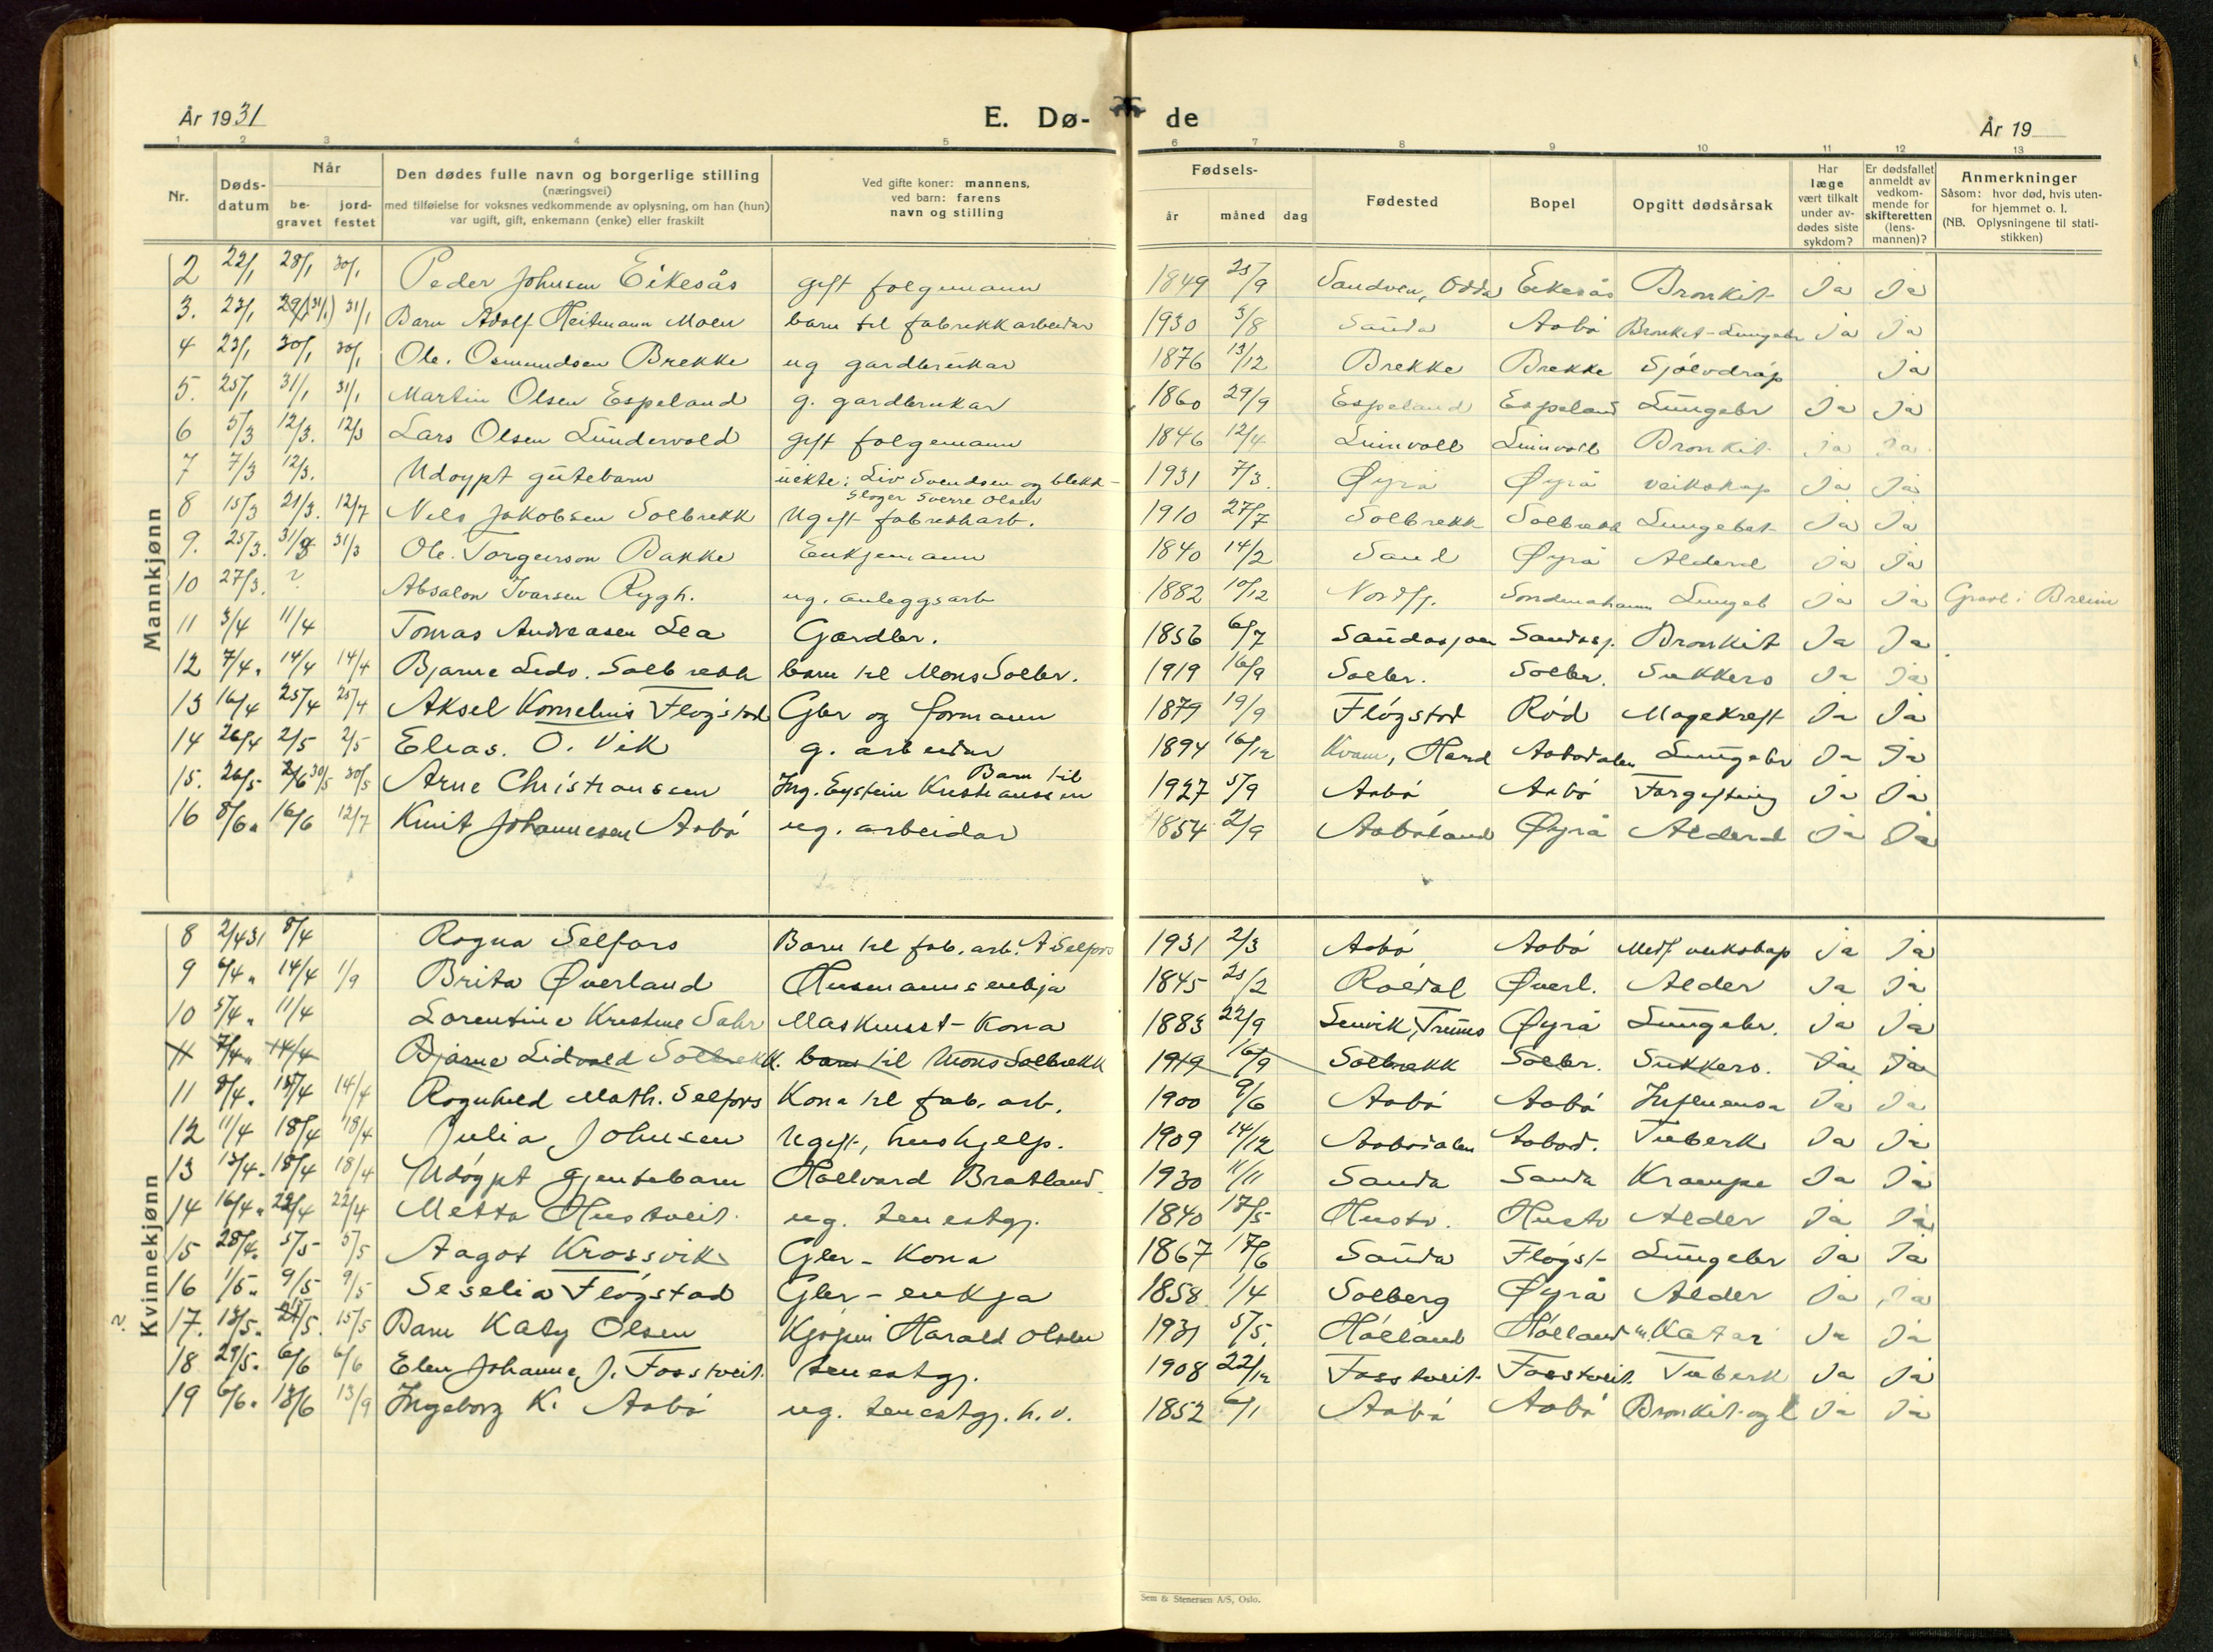 År 1931
E. Dø-
de
År 19
1 2 3 4 5 6 7 8 9 10 11 12 13
Nr.
Døds-
datum
Når
be-
gravet
jord-
festet
Den dødes fulle navn og borgerlige stilling
(næringsvei)
med tilføielse for voksnes vedkommende av oplysning, om han (hun)
var ugift, gift, enkemann (enke) eller fraskilt
Ved gifte koner: mannens,
ved barn: farens
navn og stilling
Fødsels-
år
måned
dag
Fødested
Bopel
Opgitt dødsårsak
Har
læge
vært tilkalt
under av-
dødes siste
sykdom?
Er dødsfallet
anmeldt av
vedkom-
mende for
skifteretten
(lens-
mannen)?
Anmerkninger
Såsom: hvor død, hvis uten-
for hjemmet o. l.
(NB. Oplysningene til stati-
stikken)
Mannkjønn
2 22/1 28/1 30/1 Peder Johnsen Eikesås gift folgemann 1849 25/9 Sandven, Odda Eikesås Bronkit Ja Ja
3. 23/1 29/1 (31/1) 31/1 Barn Adolf Heitmann Moen barn til fabrikkarbeidar 1930 3/8 Sauda Aabö Bronkit-Lungebr Ja Ja
4 23/1 30/1 30/1 Ole. Osmundsen Brekke ug gardbrukar 1876 13/12 Brekke Brekke Sjölvdråp Ja
5. 25/1 31/1 31/1 Martin Olsen Espeland g. gardbrukar 1860 29/9 Espeland Espeland Lungebr Ja Ja
6 5/3 12/3. 12/3 Lars Olsen Lundervold gift folgemann 1846 12/4 Luinvoll Luinvoll Bronkit Ja Ja
7 7/3 12/3. Udöypt gutebarn uekte: Liv Svendsen og blekk-
slager Sverre Olsen 1931 7/3. Øyrå Øyrå veikskap Ja Ja
8 15/3 21/3. 12/7 Nils Jakobsen Solbrekk Ugift fabrikkarb. 1910 27/7 Solbrekk Solbrekk Lungebet Ja Ja
9. 25/3. 31/3 31/3 Ole. Torgerson Bakke Enkjemann 1840 14/2 Sand Øyrå Alderd Ja Ja
10 27/3. ? Absalon Ivarsen Rygh. ug. anleggsarb 1882 10/12 Nordfj. Lungeb Ja Ja Gravl i Breim
11 3/4 11/4 Tomas Andreasen Lea Gardbr. 1856 6/7 Saudasjoen Saudasj. Bronkit Ja Ja
12 7/4 " 14/4 14/4 Bjarne Lidv. Solbrekk barn til Mons Solbr. 1919 16/9 Solbr. Solbr. Sukkers Ja Ja
13 16/4 25/4 25/4 Aksel Kornelius Flögstad Gbr og formann 1879 19/9 Flögstad Röd Magekreft Ja Ja
14 26/4 2/5 2/5 Elias. O. Vik g. arbeidar 1894 16/12 Kvam, Hard Aabödalen Lungebr Ja Ja
15. 26/5 2/6 30/5 30/5 Arne Christianssen Barn til
Ing. Eystein Kristianssen 1927 5/9 Aabö Aabö Forgiftning Ja Ja
16 8/6 " 16/6 12/7 Knut Johannesen Aabö ug. arbeidar 1854 2/9 Aaböland Øyrå Alderd Ja Ja
Kvinnekjønn
8 2/4 31 8/4 Ragna Selfors Barn til fab. arb. A Selfors 1931 2/3 Aabö Aabö Medf veikskap Ja Ja
9 6/4 " 14/4 1/9 Brita Øverland Husmannsenkja 1845 25/2 Roaldal Øverl. Alder Ja Ja
10 5/4 " 11/4 Lorentine Kristine Sahr Maskinist-Kona 1883 22/9 Lenvik, Troms Øyrå Lungebr. Ja Ja
11 7/4 " 14/4 Bjarne Lidvald Solbrekk. barn til Mons Solbrekk 1919 16/9 Solbrekk Solbr. Sukkers. Ja Ja
11 8/4 " 15/4 14/4 Ragnhild Math. Selfors Kona til fab. arb. 1900 9/6 Aabö Aabö Influensa Ja Ja
12 11/4 18/4 18/4 Julia Johnsen Ugift, hushjelp. 1909 14/12 Aabödalen Aaböd. Tuberk Ja Ja
13 13/4 " 18/4 18/4 Udöypt gjentebarn Hallvard Bratland 1930 11/11 Sauda Sauda Krampe Ja Ja
14 16/4 " 22/4 22/4 Metta Hustveit. ug. tenestgj. 1840 17/5 Hustv. Hustv Alder Ja Ja
15 28/4. 5/5 5/5 Aagot Krossvik Gbr-Kona 1867 17/6 Sauda Flögst- Lungebr Ja Ja
16 1/5 " 9/5 9/5 Seselia Flögstad Gbr-enkja 1858 1/4 Solberg Øyrå Alder Ja Ja
? 17. 13/5 " 15/5 Barn Katy Olsen Kjöpm Harald Olsen 1931 5/5. Hölland Hölland Katar Ja Ja
18 29/5 " 6/6 6/6 Elen Johanne J. Fosstveit. tenestgj. 1908 22/12 Fosstveit Fosstveit Tuberk Ja Ja
19 6/6 " 13/6 13/9 Ingeborg K. Aabö ug. tenestgj. h. v. 1852 6/1 Aabö Aabö Bronkit og l Ja Ja
Sem & Stenersen A/S, Oslo.